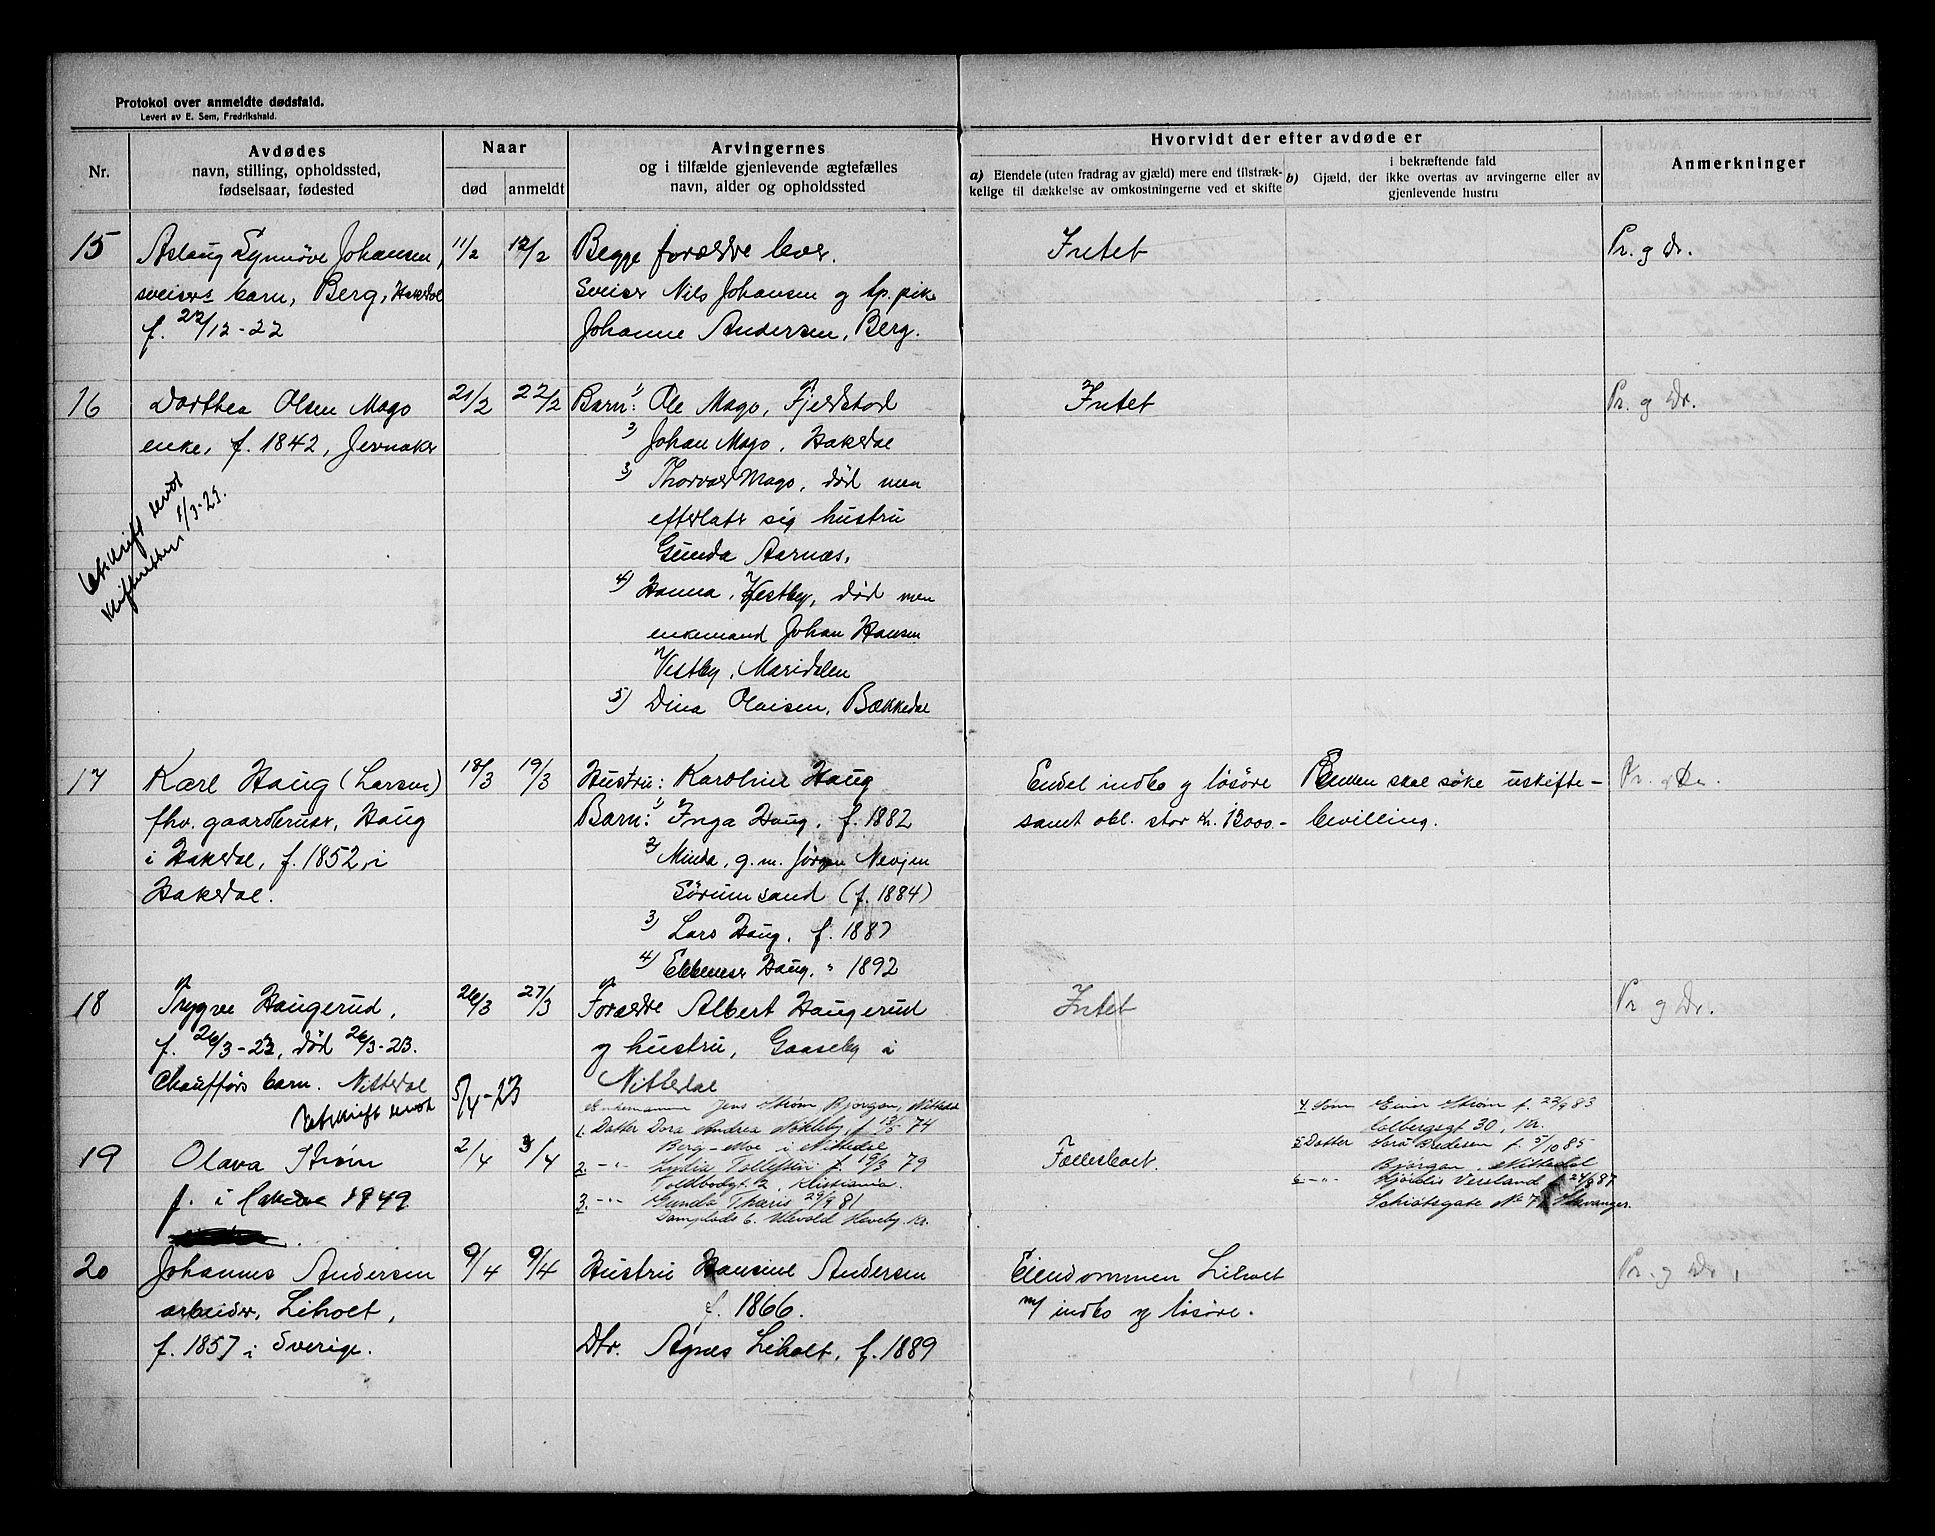 Protokol over anmeldte dødsfald.
Levert av E. Sem, Fredrikshald.
Nr.
Avdødes
navn, stilling, opholdssted,
fødselsaar, fødested
Naar
død
anmeldt
Arvingernes
og i tilfælde gjenlevende ægtefælles
navn, alder og opholdssted
Hvorvidt der efter avdøde er
a) Eiendele (uten fradrag av gjæld) mere end tilstræk-
kelige til dækkelse av omkostningerne ved et skifte
b) Gjæld, der i bekræftende fald
ikke overtas av arvingerne eller av
gjenlevende hustru
Anmerkninger
15
Aslaug Synnøve Johansen,
sveisers barn, Berg, Hakedal
f. 22/12-22
11/2
12/2
Begge forældre lever.
Sveiser Nils Johansen og tp. pike
Johanne Andersen, Berg.
Intet
Pr. g Dr.
16
Dorthea Olsen Mago
enke, f. 1842, Jevnaker
Utskrift sendt
skifteretten 1/3-23.
21/2
22/2
Barn: 1) Ole Mago, Fjeldstad
2) Johan Mago, Hakedal
3) Thorvald Mago, død men
efterlatt sig hustru
Gunda Aarnæs.
4) Hanna Vestby, død men
enkemand Johan Hansen
Vestby, Maridalen
5) Dina Olaisen, Bækkedal
Intet
Pr. g Dr.
17
Karl Haug (Larsen)
fhv. gaardbruker, Haug
i Hakedal, f. 1852, i
Hakedal.
18/3
19/3
Hustru: Karoline Haug
Barn: 1) Inga Haug, f. 1882
2) Minda, g.m. Jørgen Nevjen
Sørumsand (f. 1884)
3) Lars Haug, f. 1887
4) Ebbeneser Haug, " 1892
Endel indbo og løsøre
samt obl. stor kr. 13000.-
Enken skal søke uskifte-
bevilling.
Pr. g Dr.
18
Trygve Haugerud,
f. 26/3-23, død 26/3-23.
Chaufførs barn. Nittedal
Utskrift sendt 5/4-23
26/3
27/3
Forældre Albert Haugerud
og hustru, Gaaseby i
Nittedal
Intet
Pr g Dr.
19
Olava Strøm
f. i Hakedal 1849
2/4
3/4
Enkemann Jens Strøm, Bjørgan, Nittedal
1. Datter Dora Andrea Nøkleby, f. 74
Berg-Moe i Nittedal
2. -"- Lydia Tollefsen f. 19/3 79
Toldbodgt 2, Kristiania.
3. -"- Gunda Tharis 29/9 81
Damplads 6. Ulevold Haveby, Kr.
Fællesboet.
4 Sønn Einar Strøm f. 22/9 83
Colbergsgt 30, Kr.
5 Datter Sara Bredesen f. 5/10 85
Bjørgan, Nittedal
6 -"- Hjørdis Versland f. 24/8 87
Schiøtsgate No 7, Stavanger.
20
Johannes Andersen
arbeider, Liholt,
f. 1857 i Sverige.
9/4
9/4
Hustru Hansine Andersen
f. 1866.
Dtr. Agnes Liholt, f. 1889
Eiendommen Liholt
m/ indbo og løsøre.
Pr. g Dr.